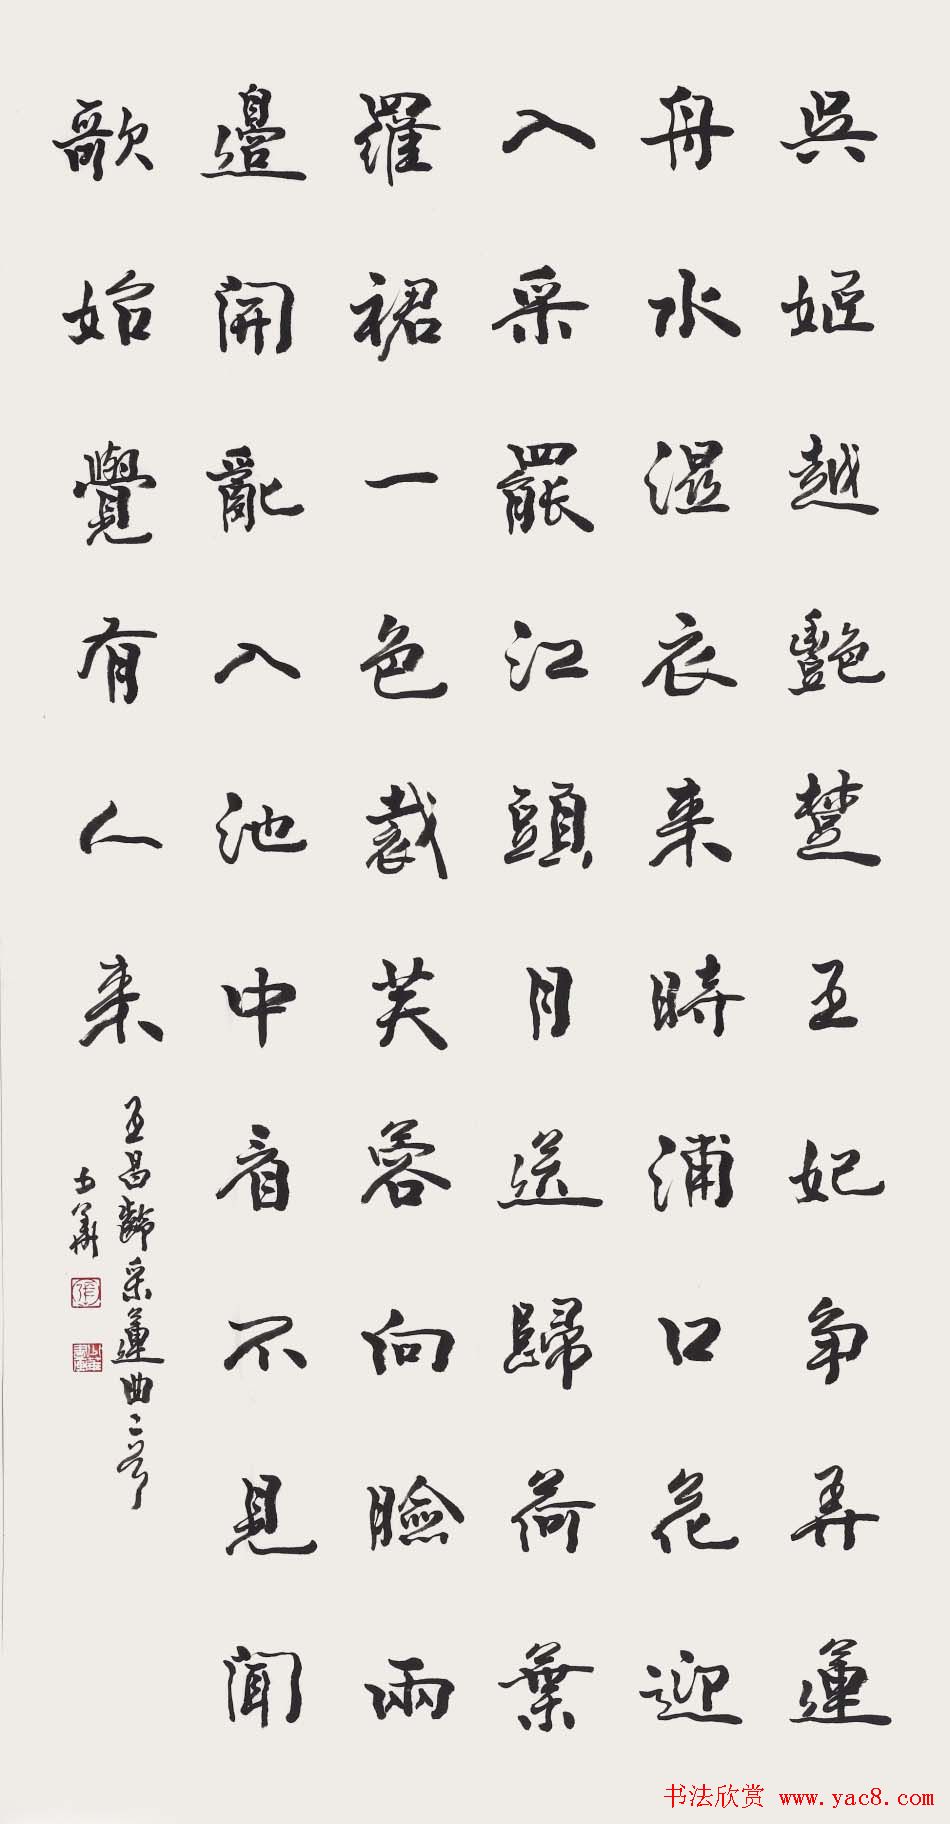 吳姬越艷楚王妃争弄蓮
舟水濕衣来時浦口花迎
入采罷江頭月送歸荷葉
羅裙一色裁芙蓉向臉兩
邊開亂入池中看不見聞
歌始覺有人来
王昌齡采蓮曲二首
華
书法欣赏 www.yac8.com